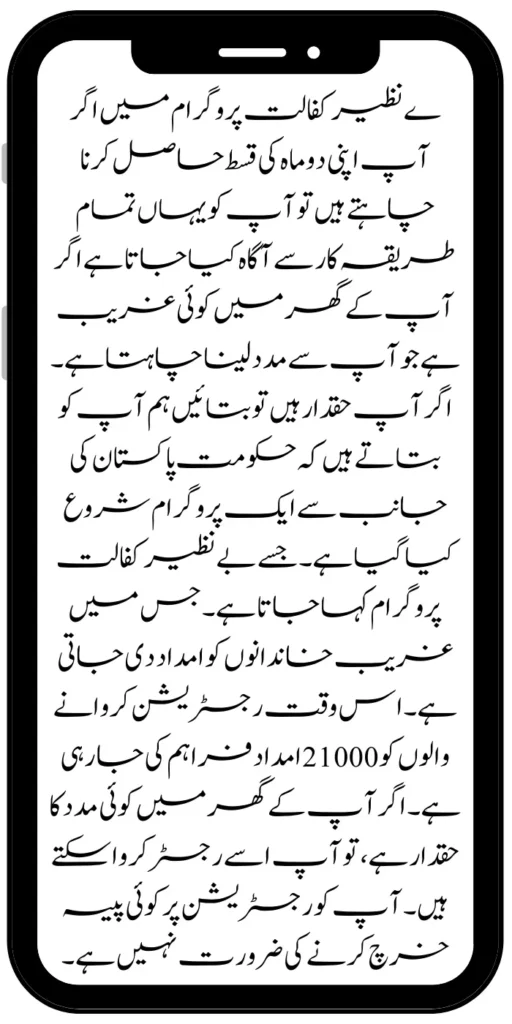 ے نظیر کفالت پروگرام میں اگر
آپ اپنی دو ماہ کی قسط حاصل کرنا
چاہتے ہیں تو آپ کو یہاں تمام
طریقہ کار سے آگاہ کیا جاتا ہے اگر
آپ کے گھر میں کوئی غریب
ہے جو آپ سے مدد لینا چاہتا ہے۔
اگر آپ حقدار ہیں تو بتائیں ہم آپ کو
بتاتے ہیں کہ حکومت پاکستان کی
جانب سے ایک پروگرام شروع
کیا گیا ہے۔ جسے بے نظیر کفالت
پروگرام کہا جاتا ہے۔ جس میں
غریب خاندانوں کو امداد دی جاتی
ہے۔ اس وقت رجسٹریشن کروانے
والوں کو 21000 امداد فراہم کی جا رہی
ہے۔ اگر آپ کے گھر میں کوئی مدد کا
حقدار ہے، تو آپ اسے رجسٹر کروا سکتے
ہیں۔ آپ کو رجسٹریشن پر کوئی پیسہ
خرچ کرنے کی ضرورت نہیں ہے۔